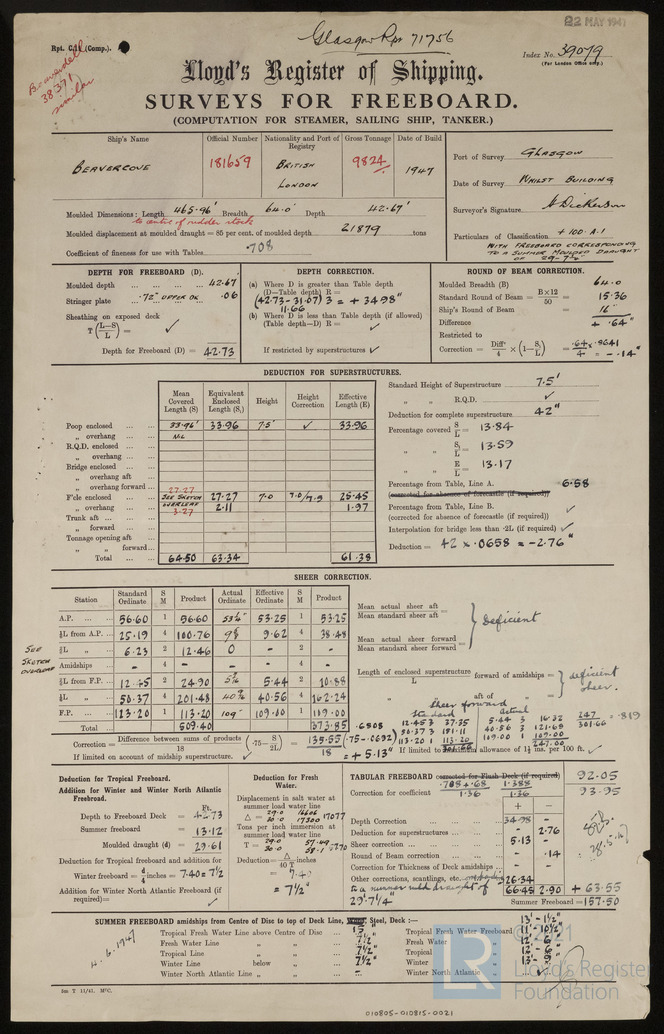 22 MAY 1947
Rpt. C.11 (Comp.).
Glasgow Rpt 71756
Index No. 39079
(For London Office only.)
Beaverdell
38371
similar
Lloyd's Register of Shipping.
SURVEYS FOR FREEBOARD.
(COMPUTATION FOR STEAMER, SAILING SHIP, TANKER.)
Ship's Name Official Number Nationality and Port of Registry Gross Tonnage Date of Build
BEAVERCOVE 181659 BRITISH LONDON 9824 1947
Port of Survey GLASGOW
Date of Survey WHILST BUILDING
Surveyor's Signature
Particulars of Classification + 100 A.1
WITH FREEBOARD CORRESPONDING
TO A SUMMER MOULDED DRAUGHT
OF 29-7½"
Moulded Dimensions: Length 465.96' Breadth 64.0' Depth 42.67'
to centre of rudder stock
Moulded displacement at moulded draught = 85 per cent. of moulded depth 21879 tons
Coefficient of fineness for use with Tables .708
DEPTH FOR FREEBOARD (D).
Moulded depth 42.67
Stringer plate .72" UPPER DK .06
Sheathing on exposed deck
T(L-S/L) = ✓
Depth for Freeboard (D) = 42.73
DEPTH CORRECTION.
(a) Where D is greater than Table depth
(D—Table depth) R =
(42.73-31.07) 3 = + 34.98"
11.66
(b) Where D is less than Table depth (if allowed)
(Table depth—D) R = ✓
If restricted by superstructures ✓
ROUND OF BEAM CORRECTION.
Moulded Breadth (B) 64.0
Standard Round of Beam = B×12/50 = 15.36
Ship's Round of Beam = 16"
Difference + .64"
Restricted to
Correction = Diff/4 × (1-S₁/L) = .64/4 × .8641 = -.14"
DEDUCTION FOR SUPERSTRUCTURES.
Mean Covered Length (S) Equivalent Enclosed Length (S₁) Height Height Correction Effective Length (E)
Poop enclosed 33.96' 33.96 7.5' ✓ 33.96
„ overhang NIL
R.Q.D. enclosed
„ overhang
Bridge enclosed
„ overhang aft
„ overhang forward
F'cle enclosed 27.27 SEE SKETCH OVERLEAF 27.27 7.0 7.0/7.5 25.45
„ overhang 3.27 2.11 1.97
Trunk aft
„ forward
Tonnage opening aft
„ „ forward
Total 64.50 63.34 61.38
Standard Height of Superstructure 7.5'
„ „ R.Q.D. ✓
Deduction for complete superstructure 42"
Percentage covered S/L = 13.84
„ „ S₁/L = 13.59
„ „ E/L = 13.17
Percentage from Table, Line A. 6.58
(corrected for absence of forecastle (if required))
Percentage from Table, Line B. ✓
(corrected for absence of forecastle (if required))
Interpolation for bridge less than ·2L (if required) ✓
Deduction = 42 × .0658 = -2.76"
SHEER CORRECTION.
Station Standard Ordinate S M Product Actual Ordinate Effective Ordinate S M Product
A.P. 56.60 1 56.60 53¼" 53.25 1 53.25
⅙L from A.P. 25.19 4 100.76 9⅝ 9.62 4 38.48
⅓L „ 6.23 2 12.46 0 - 2 -
Amidships - 4 - - - 4 -
⅓L from F.P. 12.45 2 24.90 5⁷⁄₁₆ 5.44 2 10.88
⅙L „ 50.37 4 201.48 40⁹⁄₁₆ 40.56 4 162.24
F.P. 113.20 1 113.20 109" 109.00 1 109.00
Total 509.40 373.85
SEE
SKETCH
OVERLEAF
Mean actual sheer aft
Mean standard sheer aft = deficient
Mean actual sheer forward
Mean standard sheer forward =
Length of enclosed superstructure forward of amidships =
L
„ aft of „ = deficient sheer.
Sheer forward
Standard Actual
12.45 3 37.35 5.44 3 16.32
50.37 3 151.11 40.56 3 121.68
113.20 1 113.20 109.00 1 109.00
301.66 247.00
247/301.66 = .819
Correction = Difference between sums of products/18 (·75—S/2L) = 135.55/18 (.75-.0692) .6808
= + 5.13"
If limited on account of midship superstructure. ✓
If limited to maximum allowance of 1½ ins. per 100 ft. ✓
Deduction for Tropical Freeboard.
Addition for Winter and Winter North Atlantic Freeboard.
Ft.
Depth to Freeboard Deck = 42.73
Summer freeboard = 13.12
Moulded draught (d) = 29.61
Deduction for Tropical freeboard and addition for
Winter freeboard = d/4 inches = 7.40 = 7½"
Addition for Winter North Atlantic Freeboard (if required) = ✓
Deduction for Fresh Water.
Displacement in salt water at summer load water line
Δ = 29.0 16606 17077
30.0 17300
Tons per inch immersion at summer load water line
T = 29.0 57.49
30.0
Deduction = Δ/40T inches
= 7.40
= 7½"
TABULAR FREEBOARD corrected for Flush Deck (if required) 92.05
Correction for coefficient .708+.68/1.36 1.388/1.36 93.95
+ -
Depth Correction 34.98 -
Deduction for superstructures - 2.76
Sheer correction 5.13 -
Round of Beam correction - .14
Correction for Thickness of Deck amidships - -
Other corrections, scantlings, etc. 26.34 -
to a summer mld draught of 29'-7¼"
66.45 2.90 + 63.55
Summer Freeboard = 157.50
28.5.47
SUMMER FREEBOARD amidships from Centre of Disc to top of Deck Line, Steel, Deck :— 13'-1½"
Tropical Fresh Water Line above Centre of Disc 15" Tropical Fresh Water Freeboard 11'-10½"
Fresh Water Line „ „ 7½" Fresh Water „ 12'-6"
Tropical Line „ „ 7½" Tropical „ 12'-6"
Winter Line below „ 7½" Winter „ 13'-9"
Winter North Atlantic Line „ „ - Winter North Atlantic „ ✓
4.6.1947
LR
© 2021
Lloyd's Register
Foundation
010805-010815-0021